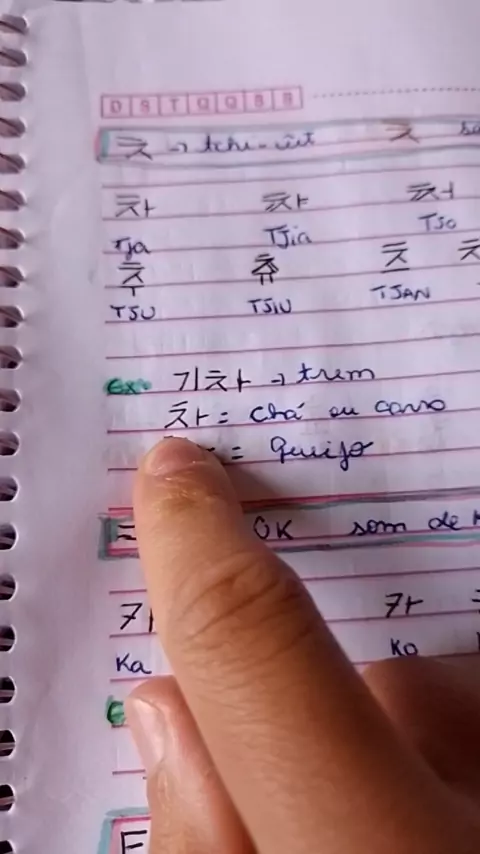 D S T Q Q S S
ㅊ → tchi-ùt ㅊ
차 챠 처
Tja TJia TJO
추 츄 츠
TJU TJIU TJAN
Ex: 기차 → trem
차 = chá ou carro
= Queijo
ㅋ OK som de K
카 카
Ka Ko